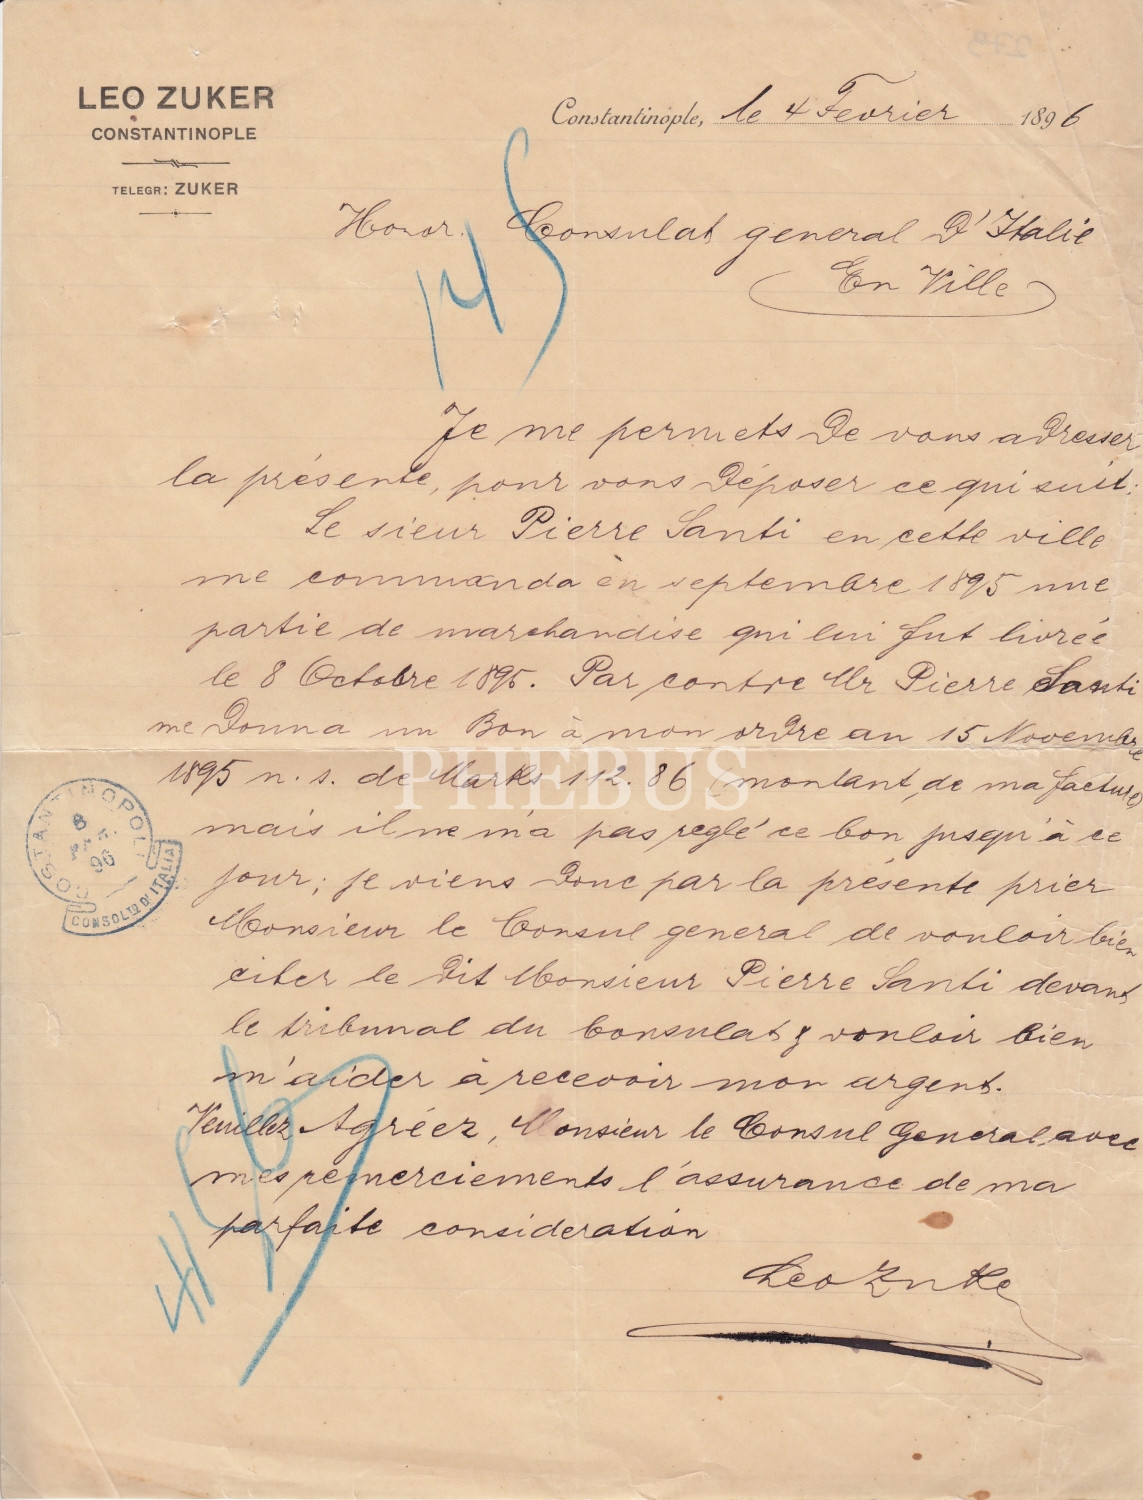 LEO ZUKER
CONSTANTINOPLE
TELEGR: ZUKER
Constantinople, le 4 Fevrier 1896
Honor. Consulat general D'Italie
En Ville
145
Je me permets De vous adresser
la présente, pour vous Déposer ce qui suit:
Le sieur Pierre Santi en cette ville
me commanda en septembre 1895 une
partie de marchandise qui lui fut livrée
le 8 Octobre 1895. Par contre Mr Pierre Santi
me Donna un Bon à mon ordre au 15 Novembre
1895 n. s. de Marks 112.86 (montant de ma facture)
mais il ne m'a pas reglé ce bon jusqu'à ce
jour; je viens Donc par la présente prier
Monsieur le Consul general de vouloir bien
citer le Dit Monsieur Pierre Santi devant
le tribunal du Consulat & vouloir bien
m'aider à recevoir mon argent.
Veuillez Agréez, Monsieur le Consul General, avec
mes remerciements l'assurance de ma
parfaite consideration
Leo Zuker
COSTANTINOPOLI
8
96
CONSOLTO D'ITALIA
PHEBUS